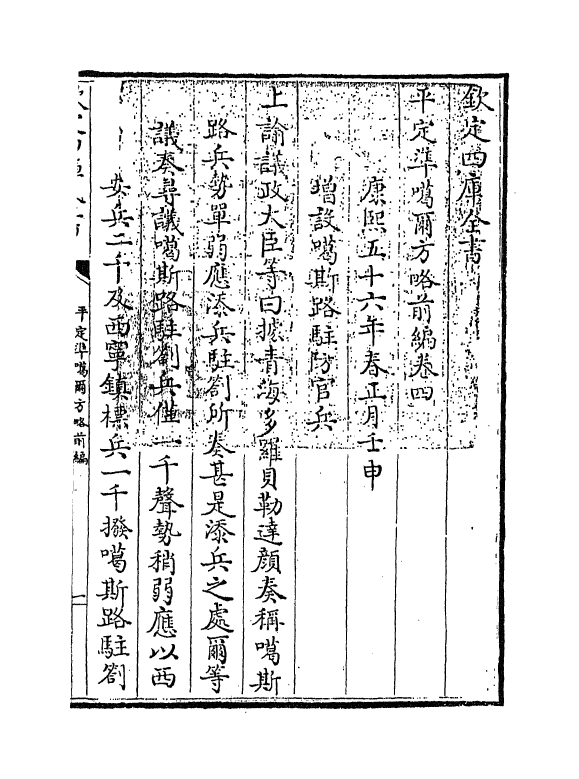 欽定四庫全書
平定準噶爾方略前編卷四
康熙五十六年春正月壬申
增設噶斯路駐防官兵
上諭議政大臣等曰據青海多羅貝勒達顔奏稱噶斯
路兵勢單弱應添兵駐劄所奏甚是添兵之處爾等
議奏尋議噶斯路駐劄兵僅一千聲勢稍弱應以西
安兵二千及西寧鎮標兵一千撥噶斯路駐劄
平定準噶爾方略前編
一